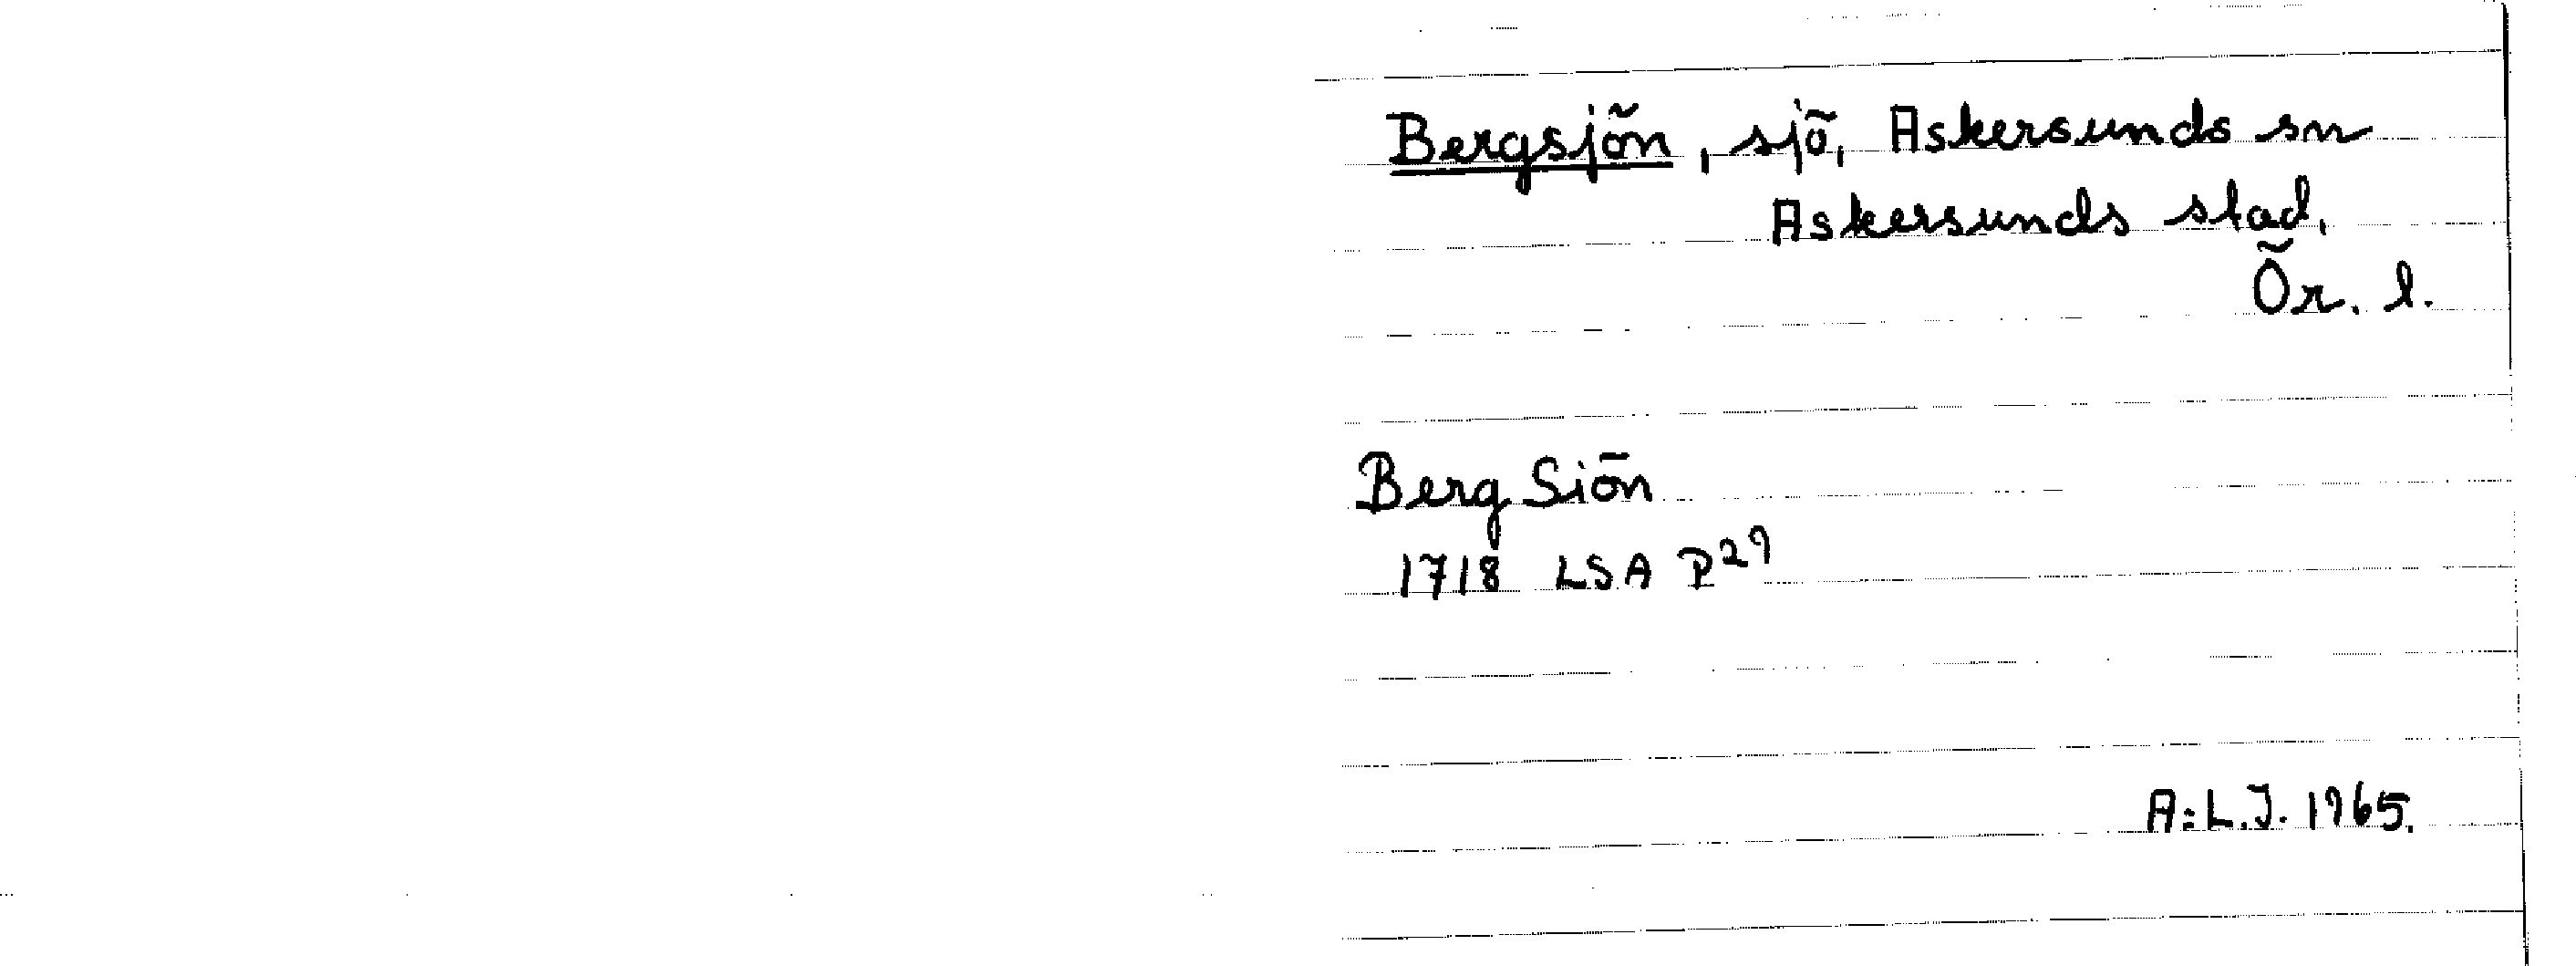 Bergsjön, sjö, Askersunds sn
Askersunds stad,
Ör. l.
Berg Siön
1718 LSA P29
A:L.J. 1965.